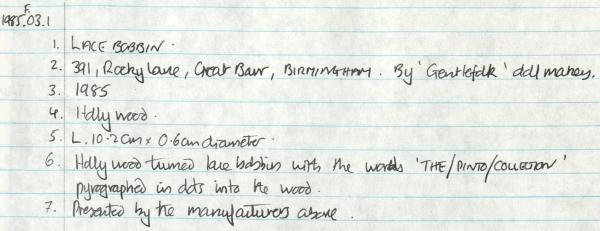 F.
1985.03.1
1. LACE BOBBIN.
2. 391, Rocky Lane, Great Barr, BIRMINGHAM. By 'Gentlefolk' doll makers.
3. 1985
4. Holly wood.
5. L. 10.2cm x 0.6cm diameter.
6. Holly wood turned lace bobbin with the words 'THE/PINTO/COLLECTION'
pyrographed in dots into the wood.
7. Presented by the manufacturers above.